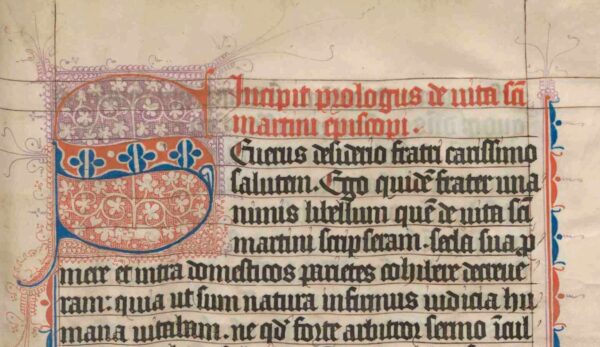 Incipit prologus de uita sc̄i
martini episcopi.
SEuerus desiderio fratri carissimo
salutem. Ego quidē frater una
nimus libellum quē de uita sc̄i
martini scripseram. sceda sua p̄
mere et intra domesticos parietes cohibere decreue
ram: quia ut sum natura infirmus iudicia hu
mana uitabam. ne qd̄ forte arbitror sermo īcul